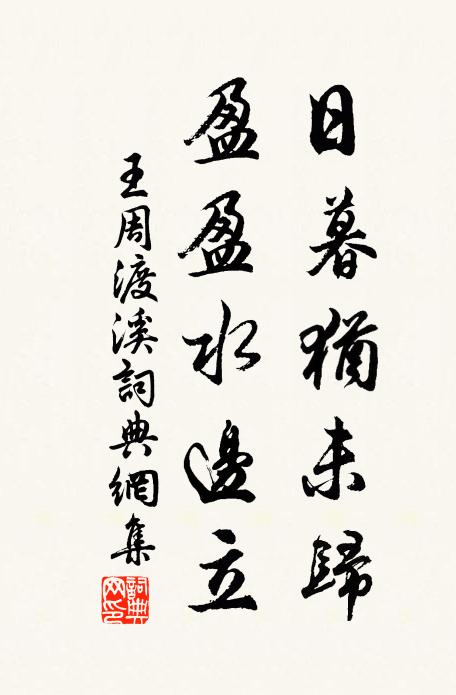 日暮猶未歸
盈盈水邊立
王周渡溪詞典網集
詞典網印